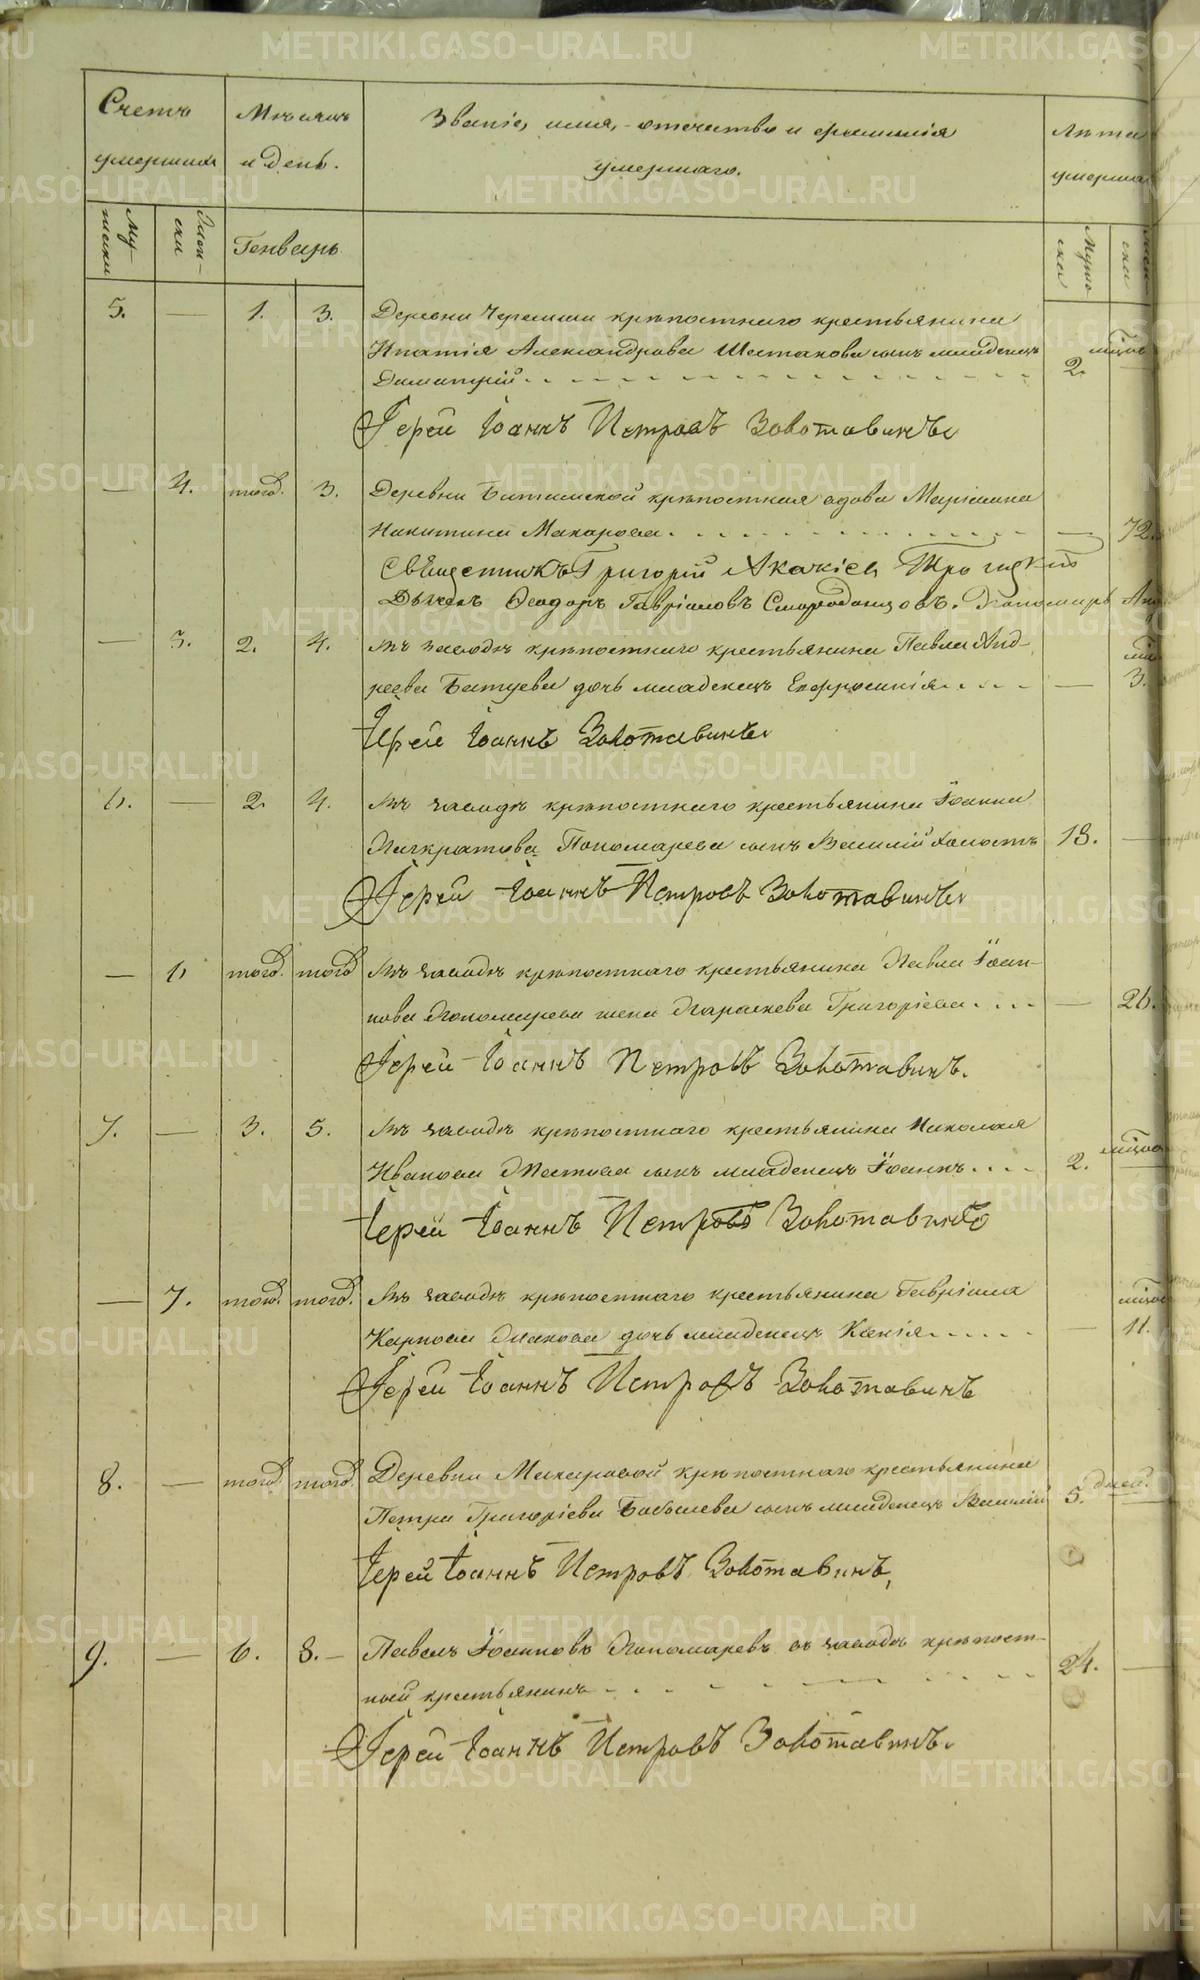 Счетъ умершихъ
Мѣсяцъ и день.
Званіе, имя, отчество и фамилія умершаго.
Лѣта умерша
Мужески
Женски
Генварь
Мужска
5. — 1. 3. Деревни Черемши крѣпостнаго крестьянина
Ипатія Александрова Шестакова сынъ младенецъ
Димитрій 2. мѣсяц
Іерей Іоаннъ Петровъ Золотавинъ
— 4. тогод. 3. Деревни крѣпостная вдова Маріамна
Никитина Макарова. — 72.
Священникъ Григорій Акакіевъ Троицкій
Дьячекъ Ѳеодоръ Гавріиловъ Смородинцовъ. Пономарь
— 5. 2. 4. Въ заводѣ крѣпостнаго крестьянина Павла Анд-
реева Батуева дочь младенецъ Евфросинія — 3.
Іерей Іоаннъ Золотавинъ
6. — 2. 4. Въ заводѣ крѣпостнаго крестьянина Іоанна
Панкратова Пономарева сынъ Василій холостъ 18. —
Іерей Іоаннъ Петровъ Золотавинъ
— 6 тогод. тогод Въ заводѣ крѣпостнаго крестьянина Павла Іоан-
нова Пономарева жена Параскева Григоріева — 26.
Іерей Іоаннъ Петровъ Золотавинъ.
7. — 3. 5. Въ заводѣ крѣпостнаго крестьянина Николая
Иванова сынъ младенецъ Іоаннъ 2. мѣсяц
Іерей Іоаннъ Петровъ Золотавинъ
— 7. тогод. тогод. Въ заводѣ крѣпостнаго крестьянина Гавріила
Карпова дочь младенецъ Ксенія — 11.
Іерей Іоаннъ Петровъ Золотавинъ
8. — тогод. тогод. Деревни Макаровой крѣпостнаго крестьянина
Петра Григоріева сынъ младенецъ Василій 5. дней.
Іерей Іоаннъ Петровъ Золотавинъ
9. — 6. 8. — Павелъ Іоанновъ Пономаревъ въ заводѣ крѣпост-
ный крестьянинъ 24. —
Іерей Іоаннъ Петровъ Золотавинъ.
METRIKI.GASO-URAL.RU